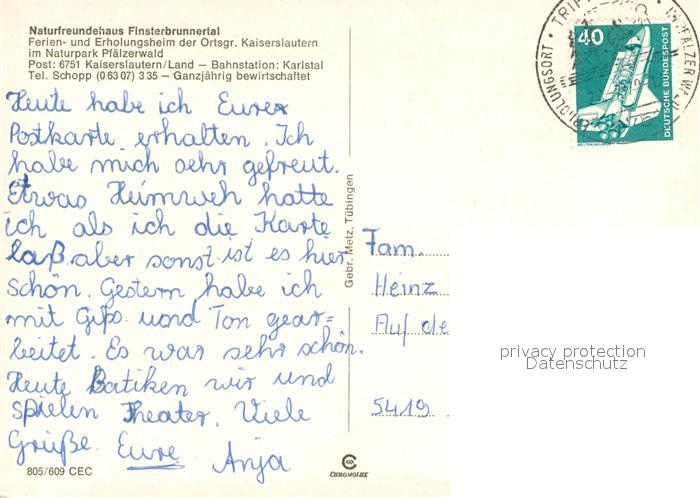 Naturfreundehaus Finsterbrunnertal
Ferien- und Erholungsheim der Ortsgr. Kaiserslautern
im Naturpark Pfälzerwald
Post: 6751 Kaiserslautern/Land – Bahnstation: Karlstal
Tel. Schopp (0 63 07) 3 35 – Ganzjährig bewirtschaftet
Heute habe ich Eurer
Postkarte erhalten. Ich
habe mich sehr gefreut.
Etwas Heimweh hatte
ich als ich die Karte
laß aber sonst ist es hier
schön. Gestern habe ich
mit Gips und Ton gear=
beitet. Es war sehr schön.
Heute Batiken wir und
spielen Theater. Viele
Grüße. Eure Anja
805/609 CEC
Gebr. Metz, Tübingen
CHROMOLUX
40
DEUTSCHE BUNDESPOST
ERHOLUNGSORT
Fam.
Heinz
Auf de
5419
privacy protection
Datenschutz